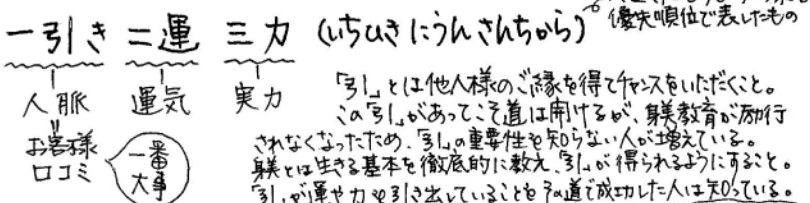 優先順位で表したもの
一引き 二運 三力 (いちひき にうん さんちから)
人脈 運気 実力
お客様
口コミ
一番
大事
「引」とは他人様のご縁を得てチャンスをいただくこと。
この「引」があってこそ道は開けるが、躾教育が励行
されなくなったため、「引」の重要性を知らない人が増えている。
躾とは生きる基本を徹底的に教え、「引」が得られるようにすること。
「引」が運や力も引き出していることをその道で成功した人は知っている。